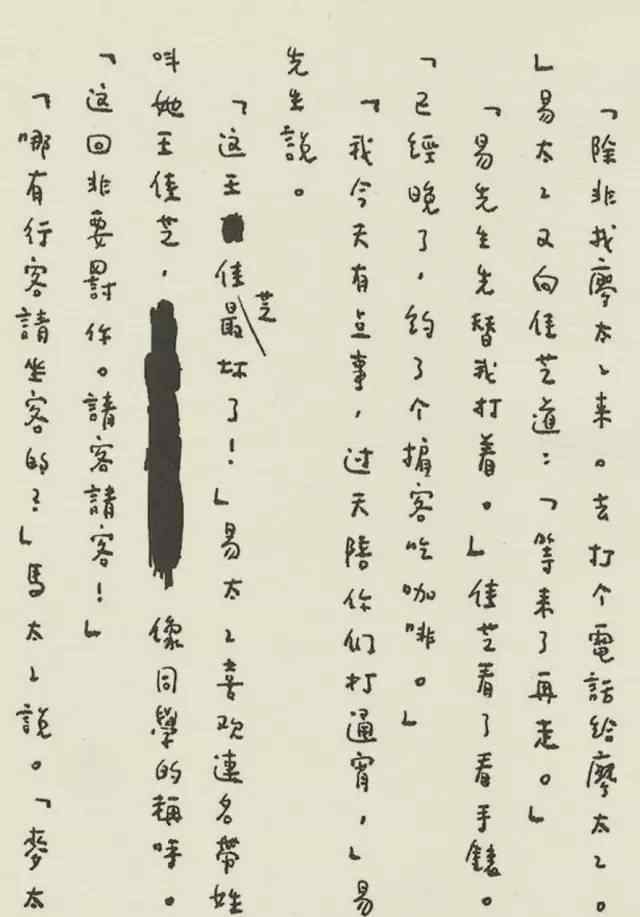 「除非找廖太々来。去打个電話給廖太々。
」易太々又向佳芝道：「等来了再走。」
「易先生先替我打着。」佳芝看了看手錶。
「已經晚了，約了个掮客吃咖啡。」
「我今天有点事，过天陪你们打通宵，」易
先生說。
「这王佳芝最坏了！」易太々喜欢連名帶姓
叫她王佳芝，像同學的稱呼。
「这回非要罰你。請客請客！」
「哪有行客請坐客的？」馬太々說。「麥太